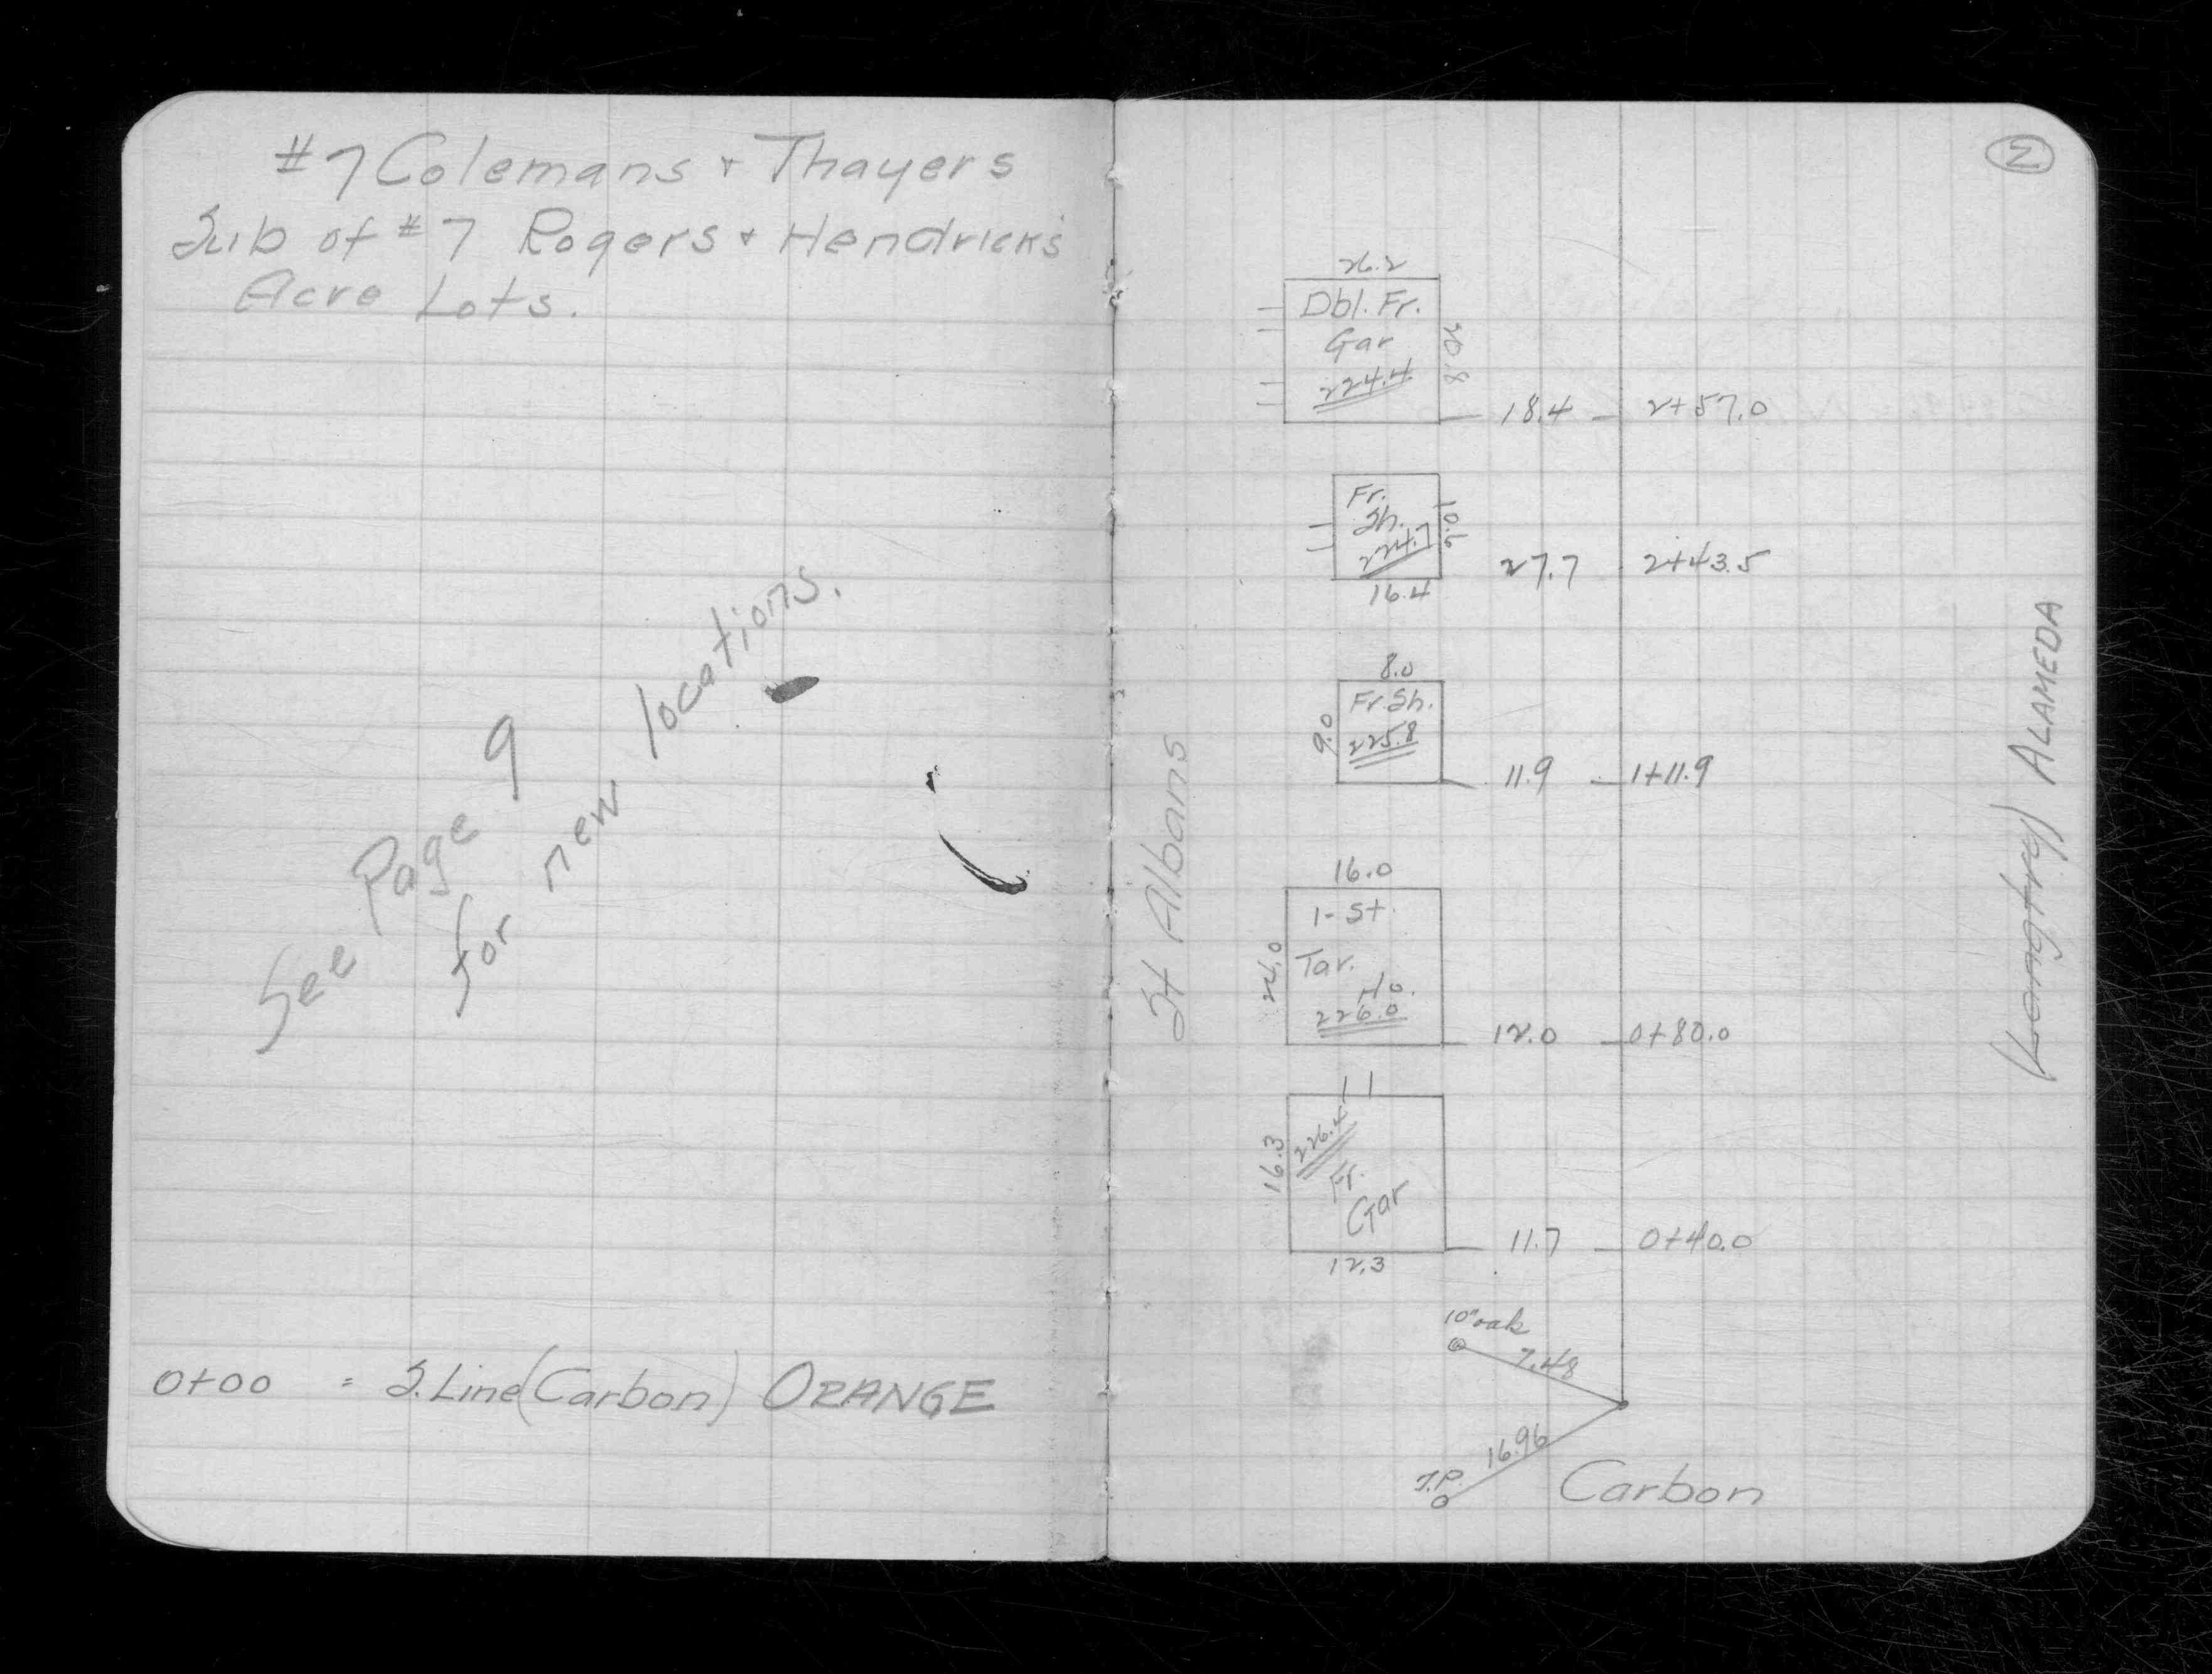 #7 Colemans + Thayers
Sub of #7 Rogers + Hendricks'
Acre Lots.
See Page 9
for new locations.
0+00 = S. Line (Carbon) ORANGE
2
26.2
Dbl. Fr.
Gar
224.4
20.8
18.4 2+57.0
Fr.
Sh.
224.7
16.4
27.7 2+43.5
8.0
Fr Sh.
225.8
9.0
11.9 1+11.9
St Albans
(Langtry) ALAMEDA
16.0
1-St.
Tar.
Ho.
226.0
24.0
12.0 0+80.0
226.4
Fr.
Gar
16.3
12.3
11.7 0+40.0
10" oak
7.48
16.96
T.P.
Carbon